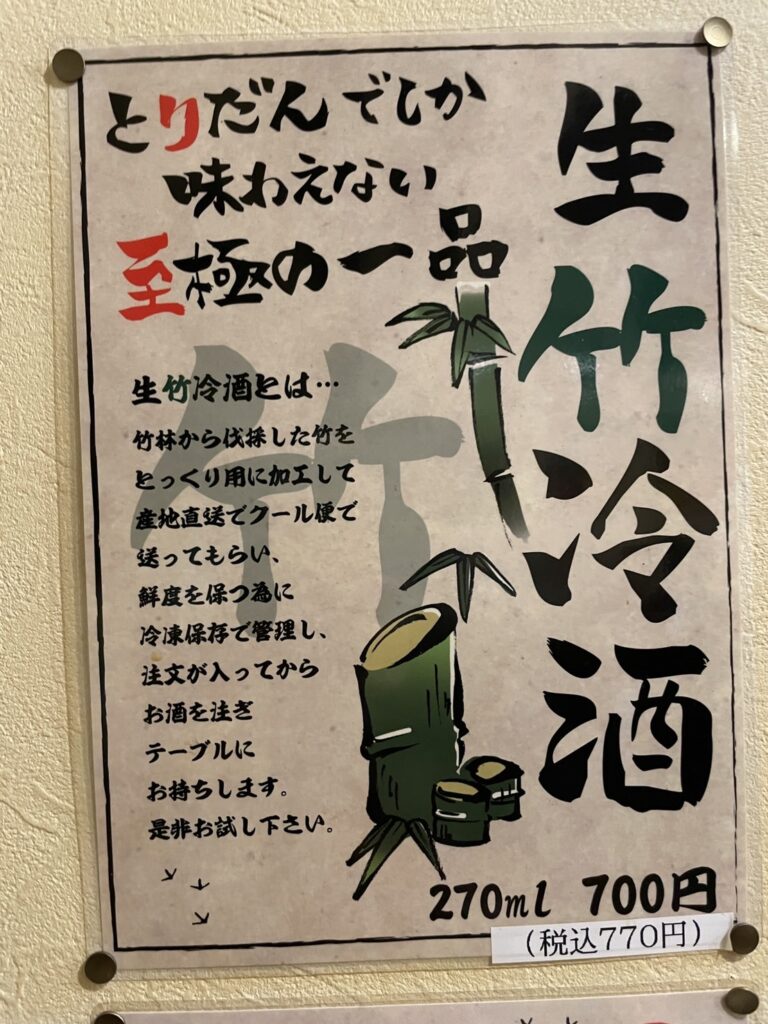 生竹冷酒
とりだんでしか
味わえない
至極の一品
竹
生竹冷酒とは…
竹林から伐採した竹を
とっくり用に加工して
産地直送でクール便で
送ってもらい、
鮮度を保つ為に
冷凍保存で管理し、
注文が入ってから
お酒を注ぎ
テーブルに
お持ちします。
是非お試し下さい。
270ml 700円
(税込770円)